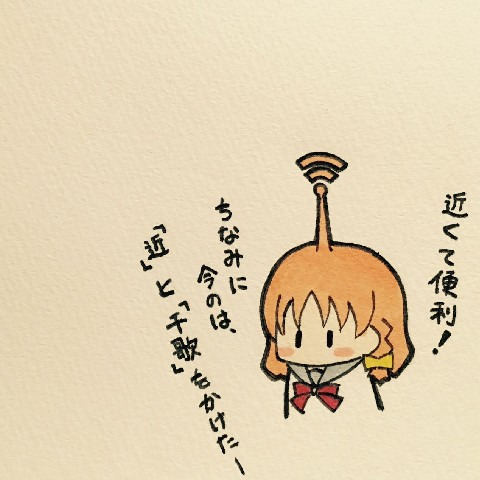 近くて便利！
ちなみに
今のは、
「近」と「千歌」をかけたー